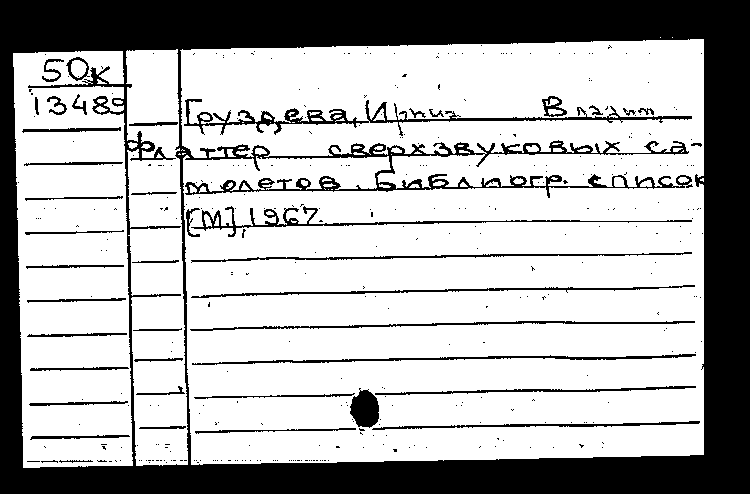 50к
13489 Груздева, Ирина Владим.
Флаттер сверхзвуковых са-
молетов. Библиогр. список
[М], 1967.